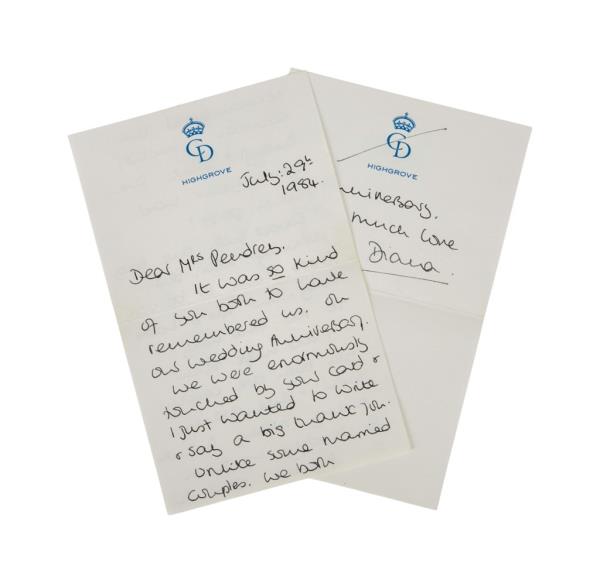 CD
HIGHGROVE
July: 29th
1984.
Dear Mrs Pendrey,
It was so kind
of you both to have
remembered us on
our wedding Anniversary.
We were enormously
touched by your card &
I just wanted to write
& say a big thank you.
Unlike some married
couples, we both
CD
HIGHGROVE
nniversary.
much love
Diana.